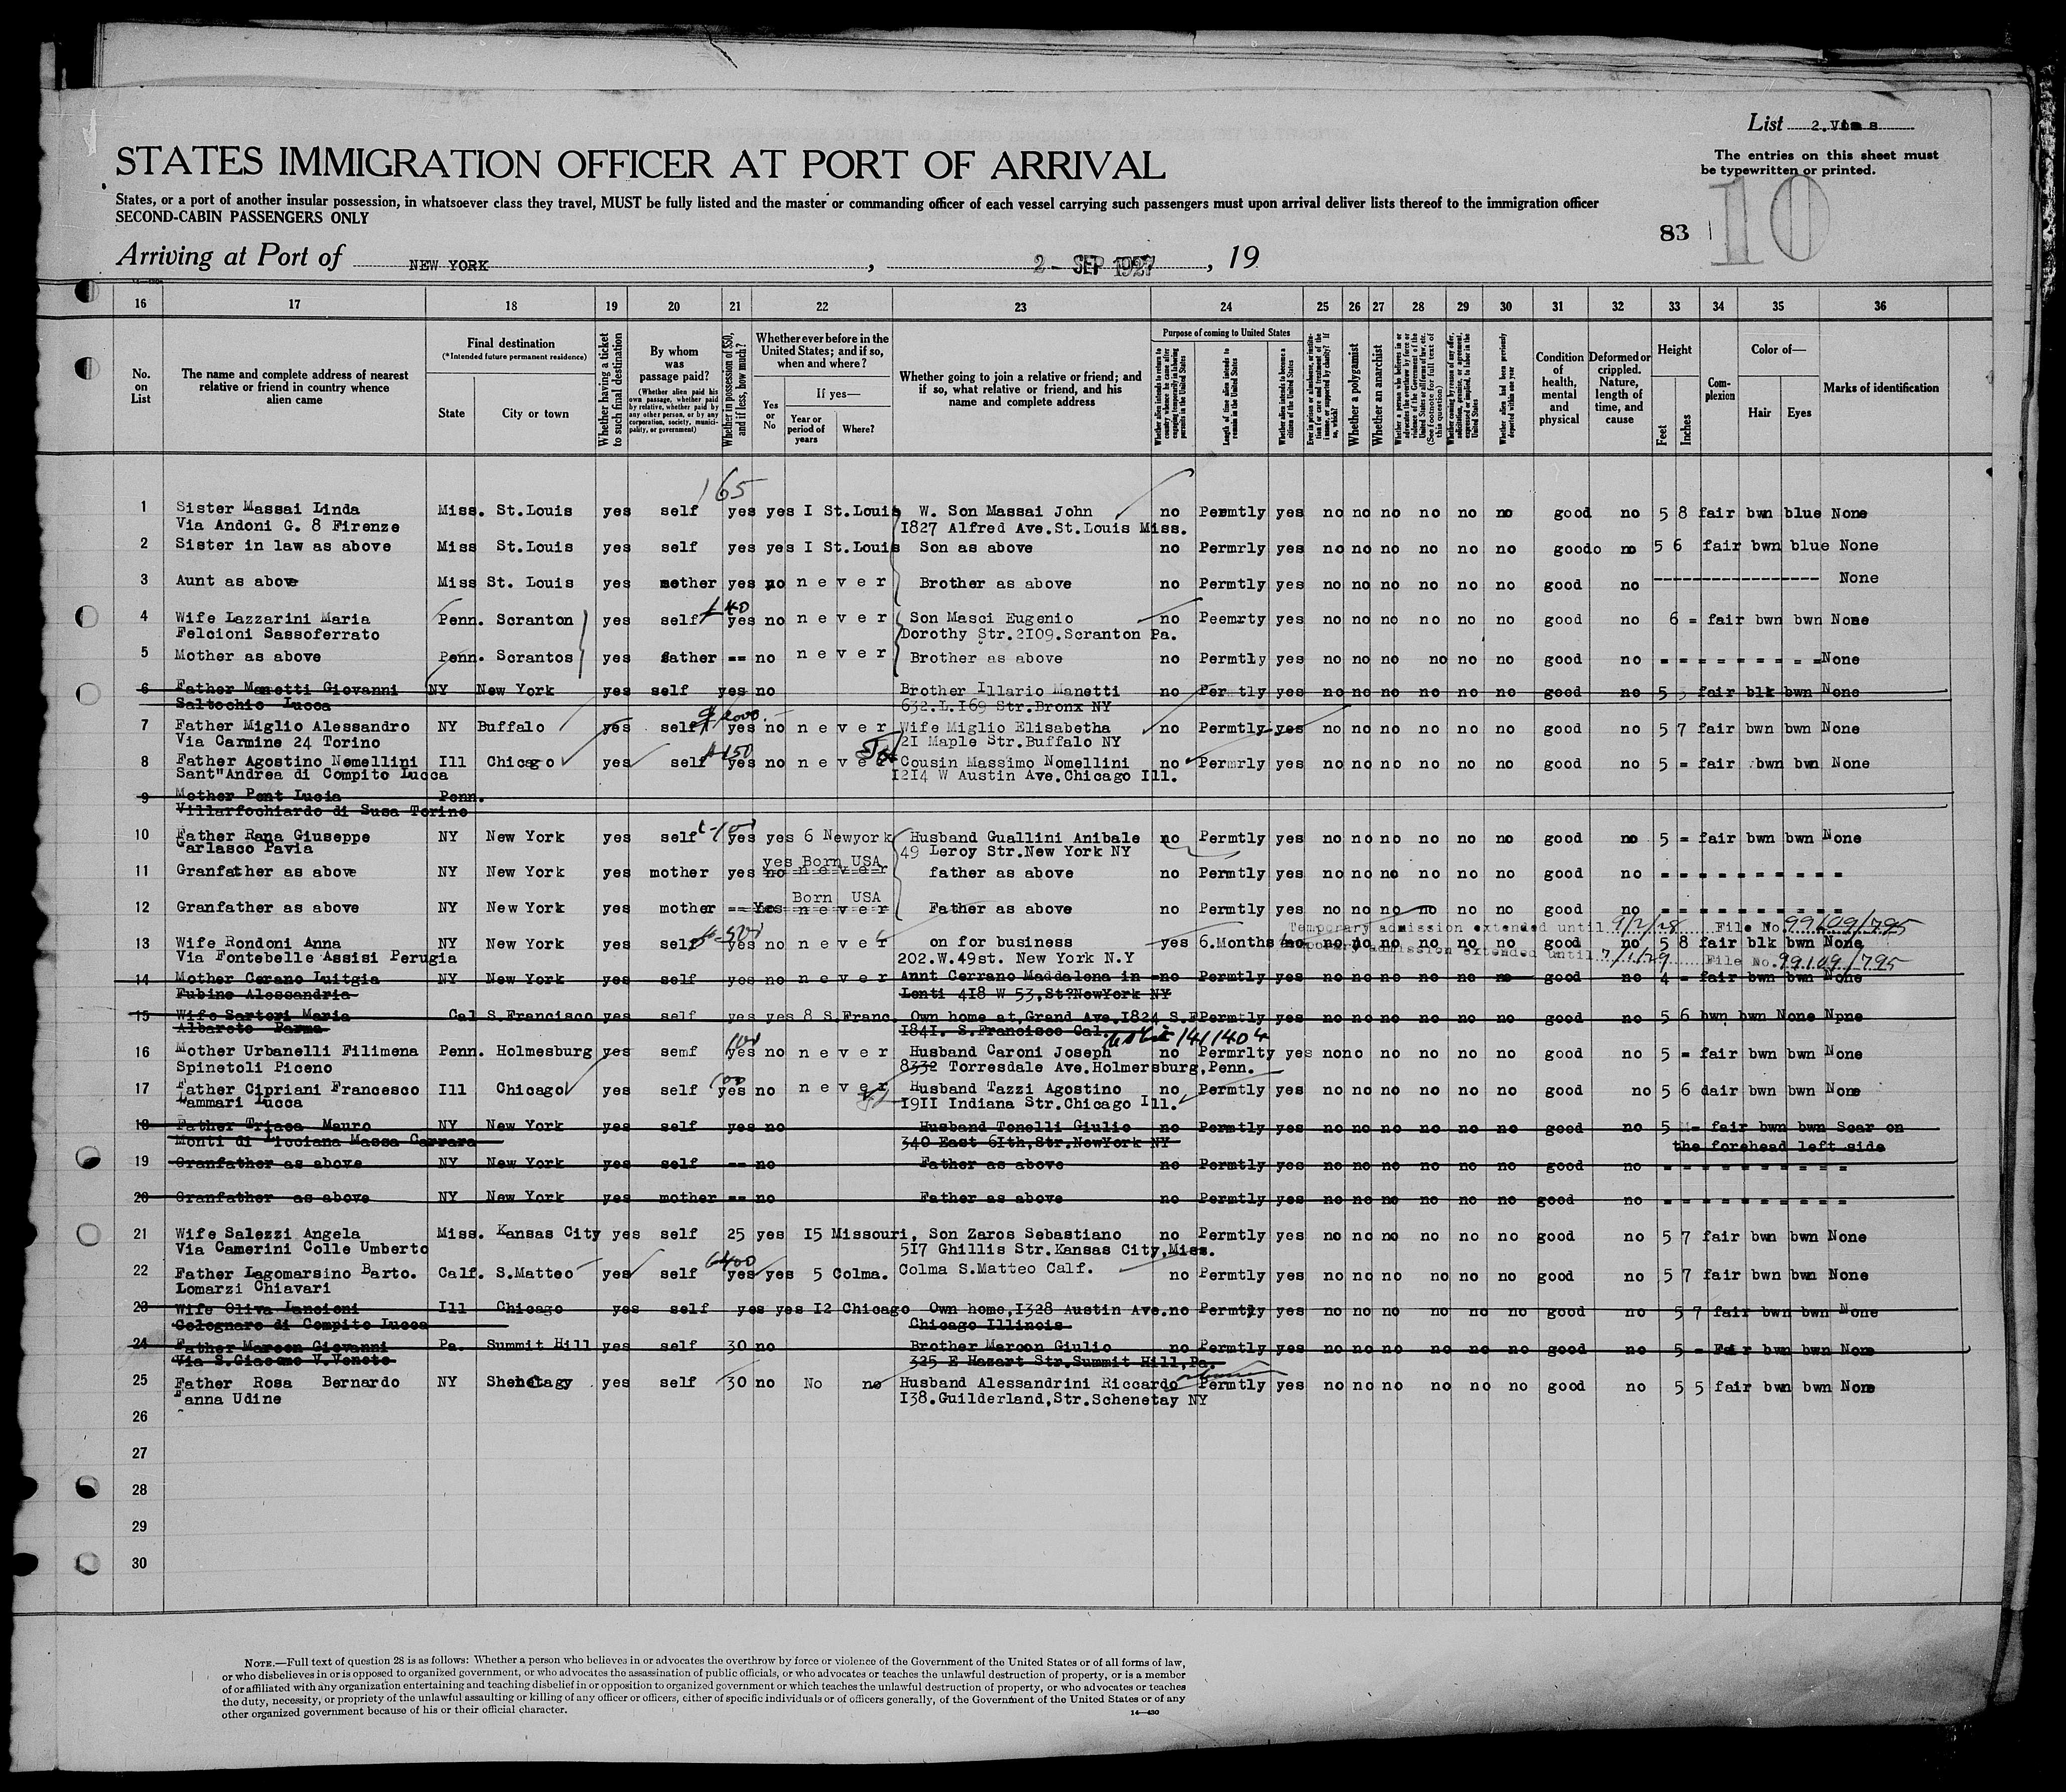 List 2.
STATES IMMIGRATION OFFICER AT PORT OF ARRIVAL
The entries on this sheet must
be typewritten or printed.
States, or a port of another insular possession, in whatsoever class they travel, MUST be fully listed and the master or commanding officer of each vessel carrying such passengers must upon arrival deliver lists thereof to the immigration officer
SECOND-CABIN PASSENGERS ONLY
83 10
Arriving at Port of NEW YORK, 2 - SEP 1927, 19
16 17 18 19 20 21 22 23 24 25 26 27 28 29 30 31 32 33 34 35 36
No. on List
The name and complete address of nearest relative or friend in country whence alien came
Final destination
(*Intended future permanent residence)
State
City or town
Whether having a ticket to such final destination
By whom was passage paid?
(Whether alien paid his own passage, whether paid by relative, whether paid by any other person, or by any corporation, society, municipality, or government)
Whether in possession of $50, and if less, how much?
Whether ever before in the United States; and if so, when and where?
Yes or No
If yes—
Year or period of years
Where?
Whether going to join a relative or friend; and if so, what relative or friend, and his name and complete address
Purpose of coming to United States
Whether alien intends to return to country whence he came after engaging temporarily in laboring pursuits in the United States
Length of time alien intends to remain in the United States
Whether alien intends to become a citizen of the United States
Ever in prison or almshouse, or institution for care and treatment of the insane, or supported by charity? If so, which?
Whether a polygamist
Whether an anarchist
Whether a person who believes in or advocates the overthrow by force or violence of the Government of the United States or all forms of law, etc. (See footnote for full text of this question)
Whether coming by reason of any offer, solicitation, promise, or agreement, expressed or implied, to labor in the United States
Whether alien had been previously deported within one year
Condition of health, mental and physical
Deformed or crippled. Nature, length of time, and cause
Height
Feet
Inches
Complexion
Color of—
Hair
Eyes
Marks of identification
165
1 Sister Massai Linda Miss. St.Louis yes self yes yes I St.Louis W. Son Massai John no Permtly yes no no no no no no good no 5 8 fair bwn blue None
Via Andoni G. 8 Firenze I827 Alfred Ave.St.Louis Miss.
2 Sister in law as above Miss St.Louis yes self yes yes I St.Louis Son as above no Permrly yes no no no no no no goodo no 5 6 fair bwn blue None
3 Aunt as above Miss St. Louis yes mother yes no n e v e r Brother as above no Permtly yes no no no no no no good no ------------------ None
40
4 Wife Lazzarini Maria Penn. Scranton yes self yes no n e v e r Son Masci Eugenio no Peemrty yes no no no no no no good no 6 = fair bwn bwn None
Felcioni Sassoferrato Dorothy Str.2I09.Scranton Pa.
5 Mother as above Penn. Scrantos yes father == no n e v e r Brother as above no Permtly yes no no no no no no good no = = = = = = = = = =None
6 Father Manetti Giovanni NY New York yes self yes no Brother Illario Manetti no Per tly yes no no no no no no good no 5 fair blk bwn None
Saltochio Lucca 632.L.I69 Str.Bronx NY
$ 2000.
7 Father Miglio Alessandro NY Buffalo yes self yes no n e v e r Wife Miglio Elisabetha no Permtly yes no no no no no no good no 5 7 fair bwn bwn None
Via Carmine 24 Torino 2I Maple Str.Buffalo NY
150
8 Father Agostino Nomellini Ill Chicago yes self yes no n e v e r Cousin Massimo Nomellini no Permrly yes no no no no no no good no 5 = fair bwn bwn None
Sant"Andrea di Compito Lucca I2I4 W Austin Ave.Chicago Ill.
9 Mother Pent Lucia Penn.
Villarfochiardo di Susa Torino
10 Father Rana Giuseppe NY New York yes self yes yes 6 Newyork Husband Guallini Anibale no Permtly yes no no no no no no good no 5 = fair bwn bwn None
Garlasco Pavia 49 Leroy Str.New York NY
yes Born USA
11 Granfather as above NY New York yes mother yes no n e v e r father as above no Permtly yes no no no no no no good no = = = = = = = = = =
Born USA
12 Granfather as above NY New York yes mother == Yes n e v e r Father as above no Permtly yes no no no no no no good no = = = = = = = = = =
Temporary admission extended until 9/2/28 File No. 99109/795
13 Wife Rondoni Anna NY New York yes self yes no n e v e r on for business yes 6.Months no no no no no no no good no 5 8 fair blk bwn None
Temporary admission extended until 7/1/29 File No. 99109/795
Via Fontebelle Assisi Perugia 202.W.49st. New York N.Y
14 Mother Cerano Luitgia NY New York yes self yes no n e v e r Annt Cerrano Maddalena in no Permtly yes no no no no no no good no 4 = fair bwn bwn None
Fubine Alessandria Lenti 4I8 W 53,St?NewYork NY
15 Wife Sartori Maria Cal S.Francisco yes self yes yes 8 S.Franc. Own home at Grand Ave.I824 S.F Permtly yes no no no no no no good no 5 6 bwn bwn None Npne
Albareto Parma I84I. S.Francisco Cal.
16 Mother Urbanelli Filimena Penn. Holmesburg yes semf yes no n e v e r Husband Caroni Joseph no Permrlty yes no no no no no no good no 5 = fair bwn bwn None
Spinetoli Piceno 8332 Torresdale Ave.Holmersburg,Penn.
100
17 Father Cipriani Francesco Ill Chicago yes self yes no n e v e r Husband Tazzi Agostino no Permtly yes no no no no no no good no 5 6 dair bwn bwn None
Lammari Lucca I9II Indiana Str.Chicago Ill.
18 Father Triaca Mauro NY New York yes self yes no Husband Tonelli Giulio no Permtly yes no no no no no no good no 5 = fair bwn bwn Scar on
Monti di Licciana Massa Carrara 340 East 6Ith,Str.NewYork NY the forehead left side
19 Granfather as above NY New York yes self == no Father as above no Permtly yes no no no no no no good no = = = = = = = = = =
20 Granfather as above NY New York yes mother == no Father as above no Permtly yes no no no no no no good no = = = = = = = = = =
21 Wife Salezzi Angela Miss. Kansas City yes self 25 yes I5 Missouri, Son Zaros Sebastiano no Permtly yes no no no no no no good no 5 7 fair bwn bwn None
Via Camerini Colle Umberto 5I7 Ghillis Str.Kansas City,Miss.
400
22 Father Lagomarsino Barto. Calf. S.Matteo yes self yes yes 5 Colma. Colma S.Matteo Calf. no Permtly yes no no no no no no good no 5 7 fair bwn bwn None
Lomarzi Chiavari
23 Wife Oliva Lancioni Ill Chicago yes self yes yes I2 Chicago Own home,I328 Austin Ave. no Permtly yes no no no no no no good no 5 7 fair bwn bwn None
Colognaro di Compito Lucca Chicago Illinois
24 Father Marcon Giovanni Pa. Summit Hill yes self 30 no Brother Marcon Giulio no Permtly yes no no no no no no good no 5 = Fair bwn bwn None
Via S.Giacomo V.Veneto 325 E Hazart Str.Summit Hill,Pa.
25 Father Rosa Bernardo NY Shenetagy yes self 30 no No no Husband Alessandrini Riccardo Permtly yes no no no no no no good no 5 5 fair bwn bwn None
Fanna Udine I38.Guilderland,Str.Schenetay NY
26
27
28
29
30
NOTE.—Full text of question 28 is as follows: Whether a person who believes in or advocates the overthrow by force or violence of the Government of the United States or of all forms of law,
or who disbelieves in or is opposed to organized government, or who advocates the assassination of public officials, or who advocates or teaches the unlawful destruction of property, or is a member
of or affiliated with any organization entertaining and teaching disbelief in or opposition to organized government or which teaches the unlawful destruction of property, or who advocates or teaches
the duty, necessity, or propriety of the unlawful assaulting or killing of any officer or officers, either of specific individuals or of officers generally, of the Government of the United States or of any
other organized government because of his or their official character.
14—430